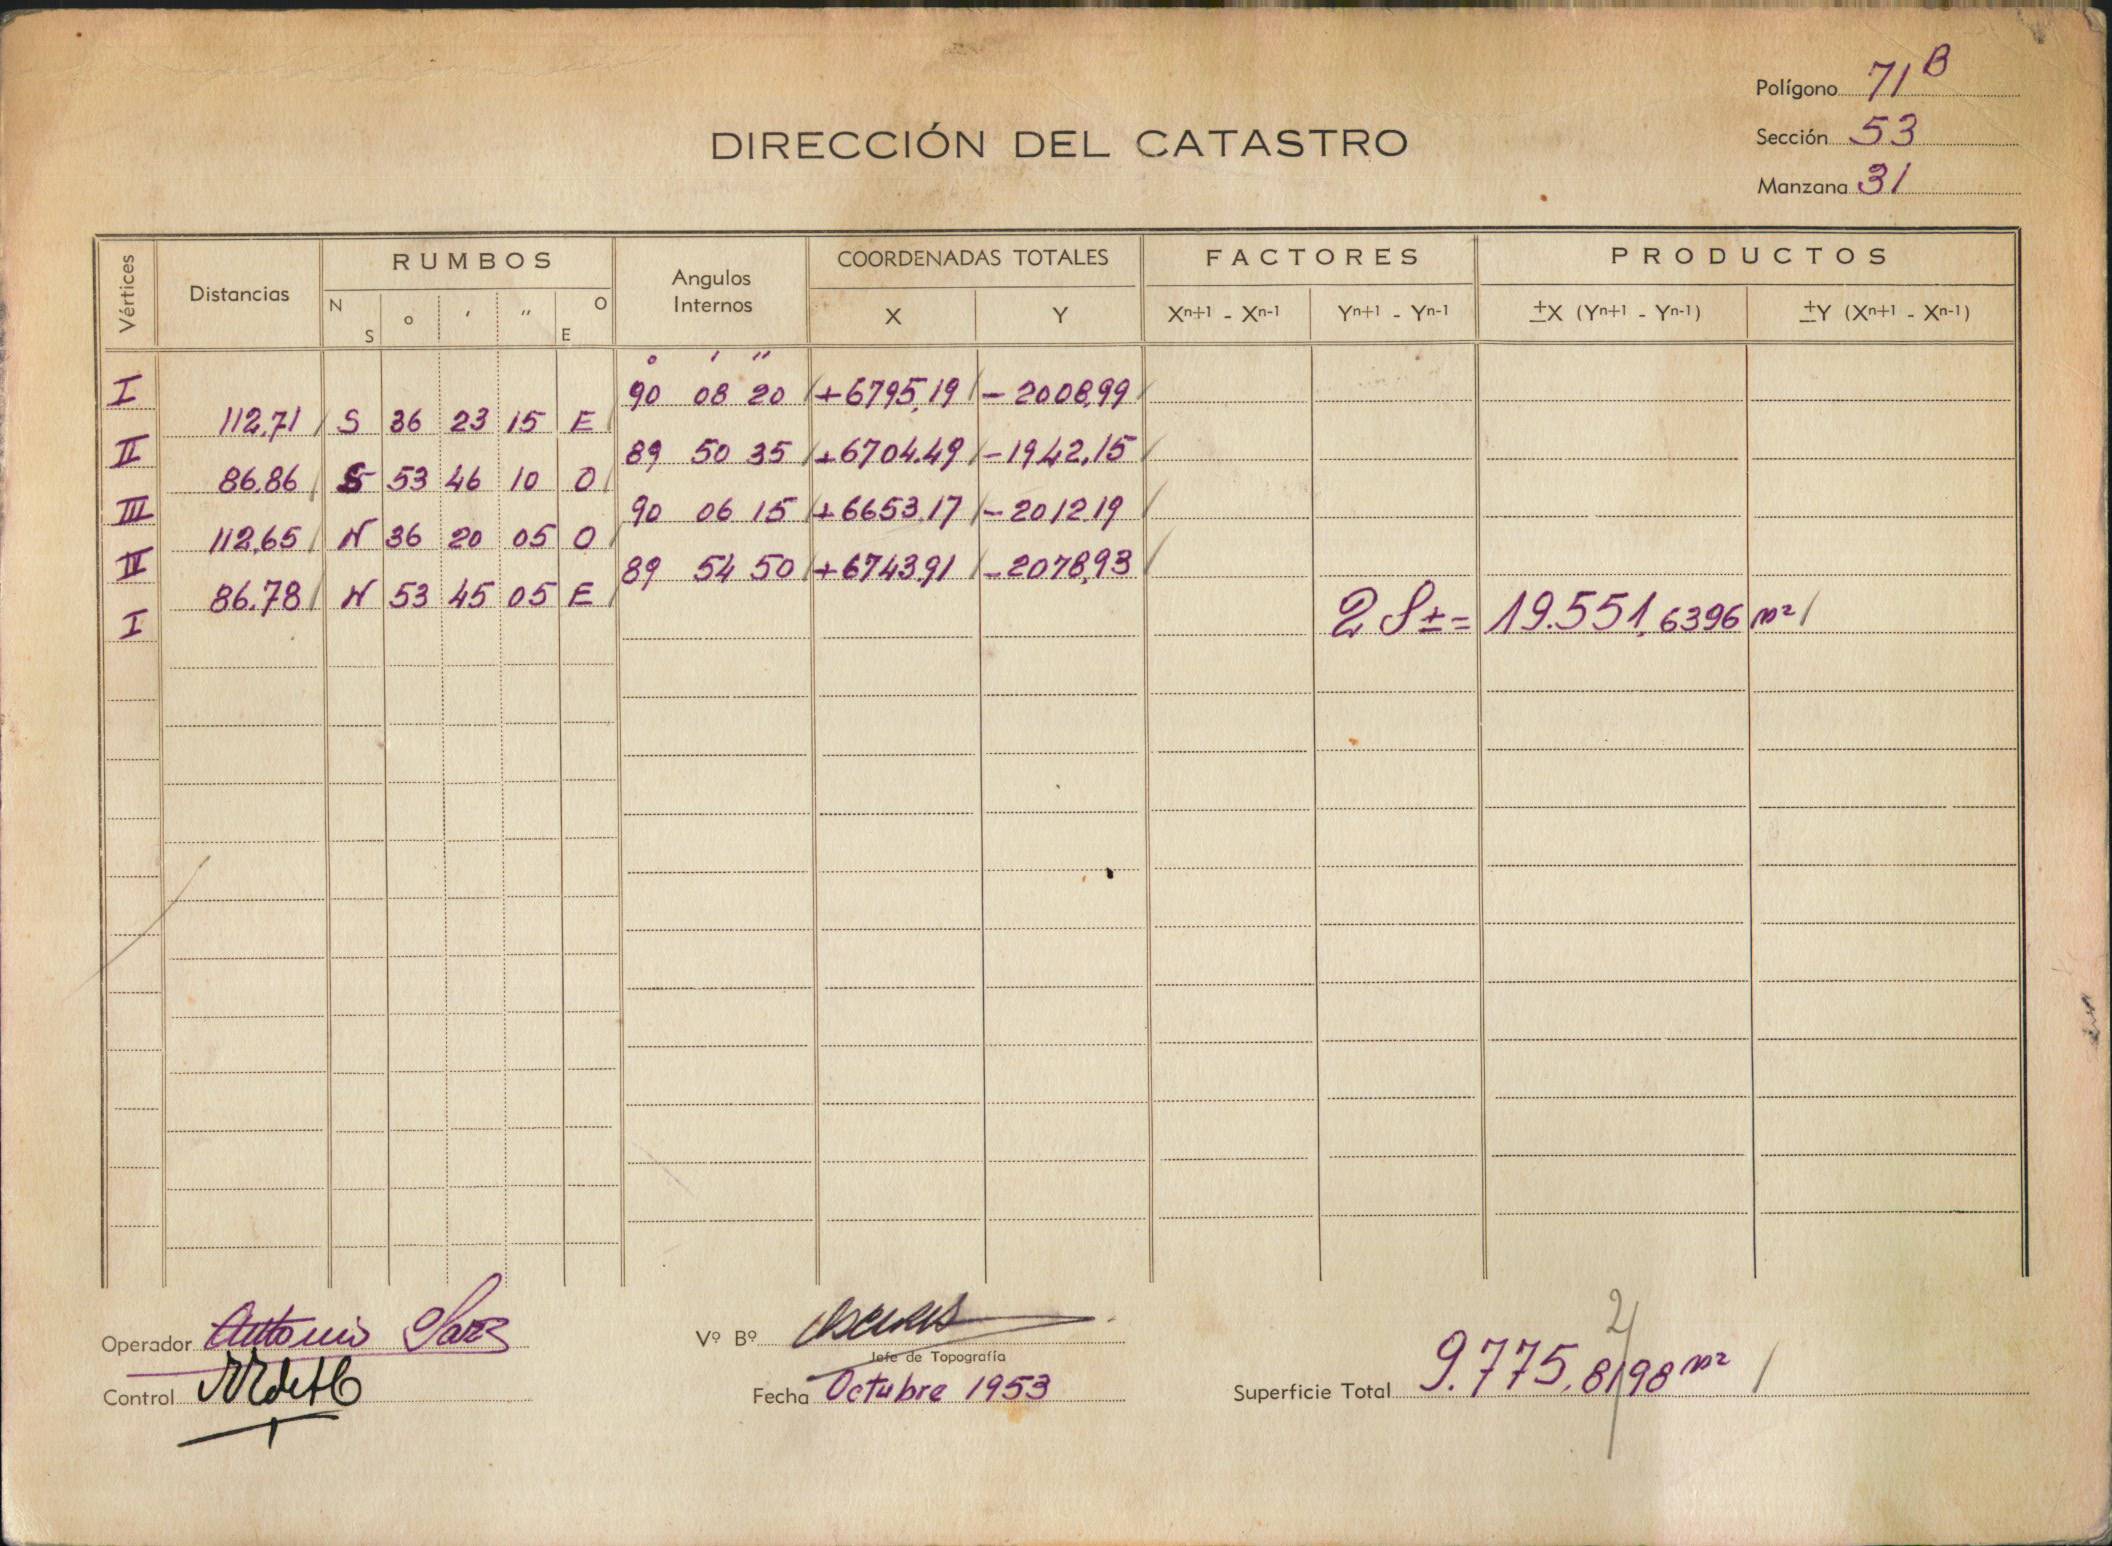 Polígono 71 B
Sección 53
Manzana 31
DIRECCIÓN DEL CATASTRO
Vértices Distancias RUMBOS Angulos Internos COORDENADAS TOTALES FACTORES PRODUCTOS
N S o ' " O E X Y Xn+1 - Xn-1 Yn+1 - Yn-1 ±X (Yn+1 - Yn-1) ±Y (Xn+1 - Xn-1)
° ' "
I 90 08 20 +6795,19 -2008,99
112,71 S 36 23 15 E
II 89 50 35 +6704.49 -1942,15
86.86 S 53 46 10 O
III 90 06 15 +6653.17 -2012.19
112,65 N 36 20 05 O
IV 89 54 50 +6743,91 -2078,93
86.78 N 53 45 05 E
I 2 S ± = 19.551,6396 m²
Operador Antonio
Vº Bº
Jefe de Topografía
Control
Fecha Octubre 1953
Superficie Total 9.775,8198 m²
2